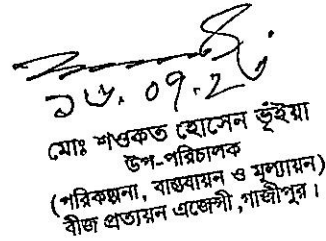 ১৬.০৭.২
মোঃ শওকত হোসেন ভূঁইয়া
উপ-পরিচালক
(পরিকল্পনা, বাস্তবায়ন ও মূল্যায়ন)
বীজ প্রত্যয়ন এজেন্সী, গাজীপুর।